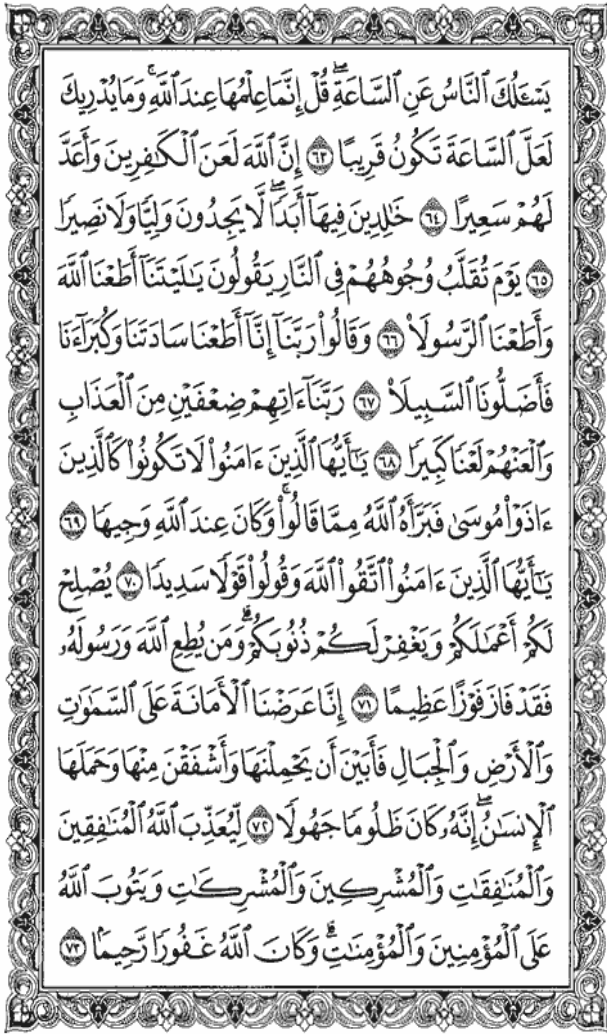 يَسْـَٔلُكَ ٱلنَّاسُ عَنِ ٱلسَّاعَةِۖ قُلْ إِنَّمَا عِلْمُهَا عِندَ ٱللَّهِۚ وَمَا يُدْرِيكَ
لَعَلَّ ٱلسَّاعَةَ تَكُونُ قَرِيبًا ٦٣ إِنَّ ٱللَّهَ لَعَنَ ٱلْكَٰفِرِينَ وَأَعَدَّ
لَهُمْ سَعِيرًا ٦٤ خَٰلِدِينَ فِيهَآ أَبَدًاۖ لَّا يَجِدُونَ وَلِيًّا وَلَا نَصِيرًا
٦٥ يَوْمَ تُقَلَّبُ وُجُوهُهُمْ فِى ٱلنَّارِ يَقُولُونَ يَٰلَيْتَنَآ أَطَعْنَا ٱللَّهَ
وَأَطَعْنَا ٱلرَّسُولَا۠ ٦٦ وَقَالُوا۟ رَبَّنَآ إِنَّآ أَطَعْنَا سَادَتَنَا وَكُبَرَآءَنَا
فَأَضَلُّونَا ٱلسَّبِيلَا۠ ٦٧ رَبَّنَآ ءَاتِهِمْ ضِعْفَيْنِ مِنَ ٱلْعَذَابِ
وَٱلْعَنْهُمْ لَعْنًا كَبِيرًا ٦٨ يَٰٓأَيُّهَا ٱلَّذِينَ ءَامَنُوا۟ لَا تَكُونُوا۟ كَٱلَّذِينَ
ءَاذَوْا۟ مُوسَىٰ فَبَرَّأَهُ ٱللَّهُ مِمَّا قَالُوا۟ۚ وَكَانَ عِندَ ٱللَّهِ وَجِيهًا ٦٩
يَٰٓأَيُّهَا ٱلَّذِينَ ءَامَنُوا۟ ٱتَّقُوا۟ ٱللَّهَ وَقُولُوا۟ قَوْلًا سَدِيدًا ٧٠ يُصْلِحْ
لَكُمْ أَعْمَٰلَكُمْ وَيَغْفِرْ لَكُمْ ذُنُوبَكُمْۗ وَمَن يُطِعِ ٱللَّهَ وَرَسُولَهُۥ
فَقَدْ فَازَ فَوْزًا عَظِيمًا ٧١ إِنَّا عَرَضْنَا ٱلْأَمَانَةَ عَلَى ٱلسَّمَٰوَٰتِ
وَٱلْأَرْضِ وَٱلْجِبَالِ فَأَبَيْنَ أَن يَحْمِلْنَهَا وَأَشْفَقْنَ مِنْهَا وَحَمَلَهَا
ٱلْإِنسَٰنُۖ إِنَّهُۥ كَانَ ظَلُومًا جَهُولًا ٧٢ لِّيُعَذِّبَ ٱللَّهُ ٱلْمُنَٰفِقِينَ
وَٱلْمُنَٰفِقَٰتِ وَٱلْمُشْرِكِينَ وَٱلْمُشْرِكَٰتِ وَيَتُوبَ ٱللَّهُ
عَلَى ٱلْمُؤْمِنِينَ وَٱلْمُؤْمِنَٰتِۗ وَكَانَ ٱللَّهُ غَفُورًا رَّحِيمًۢا ٧٣